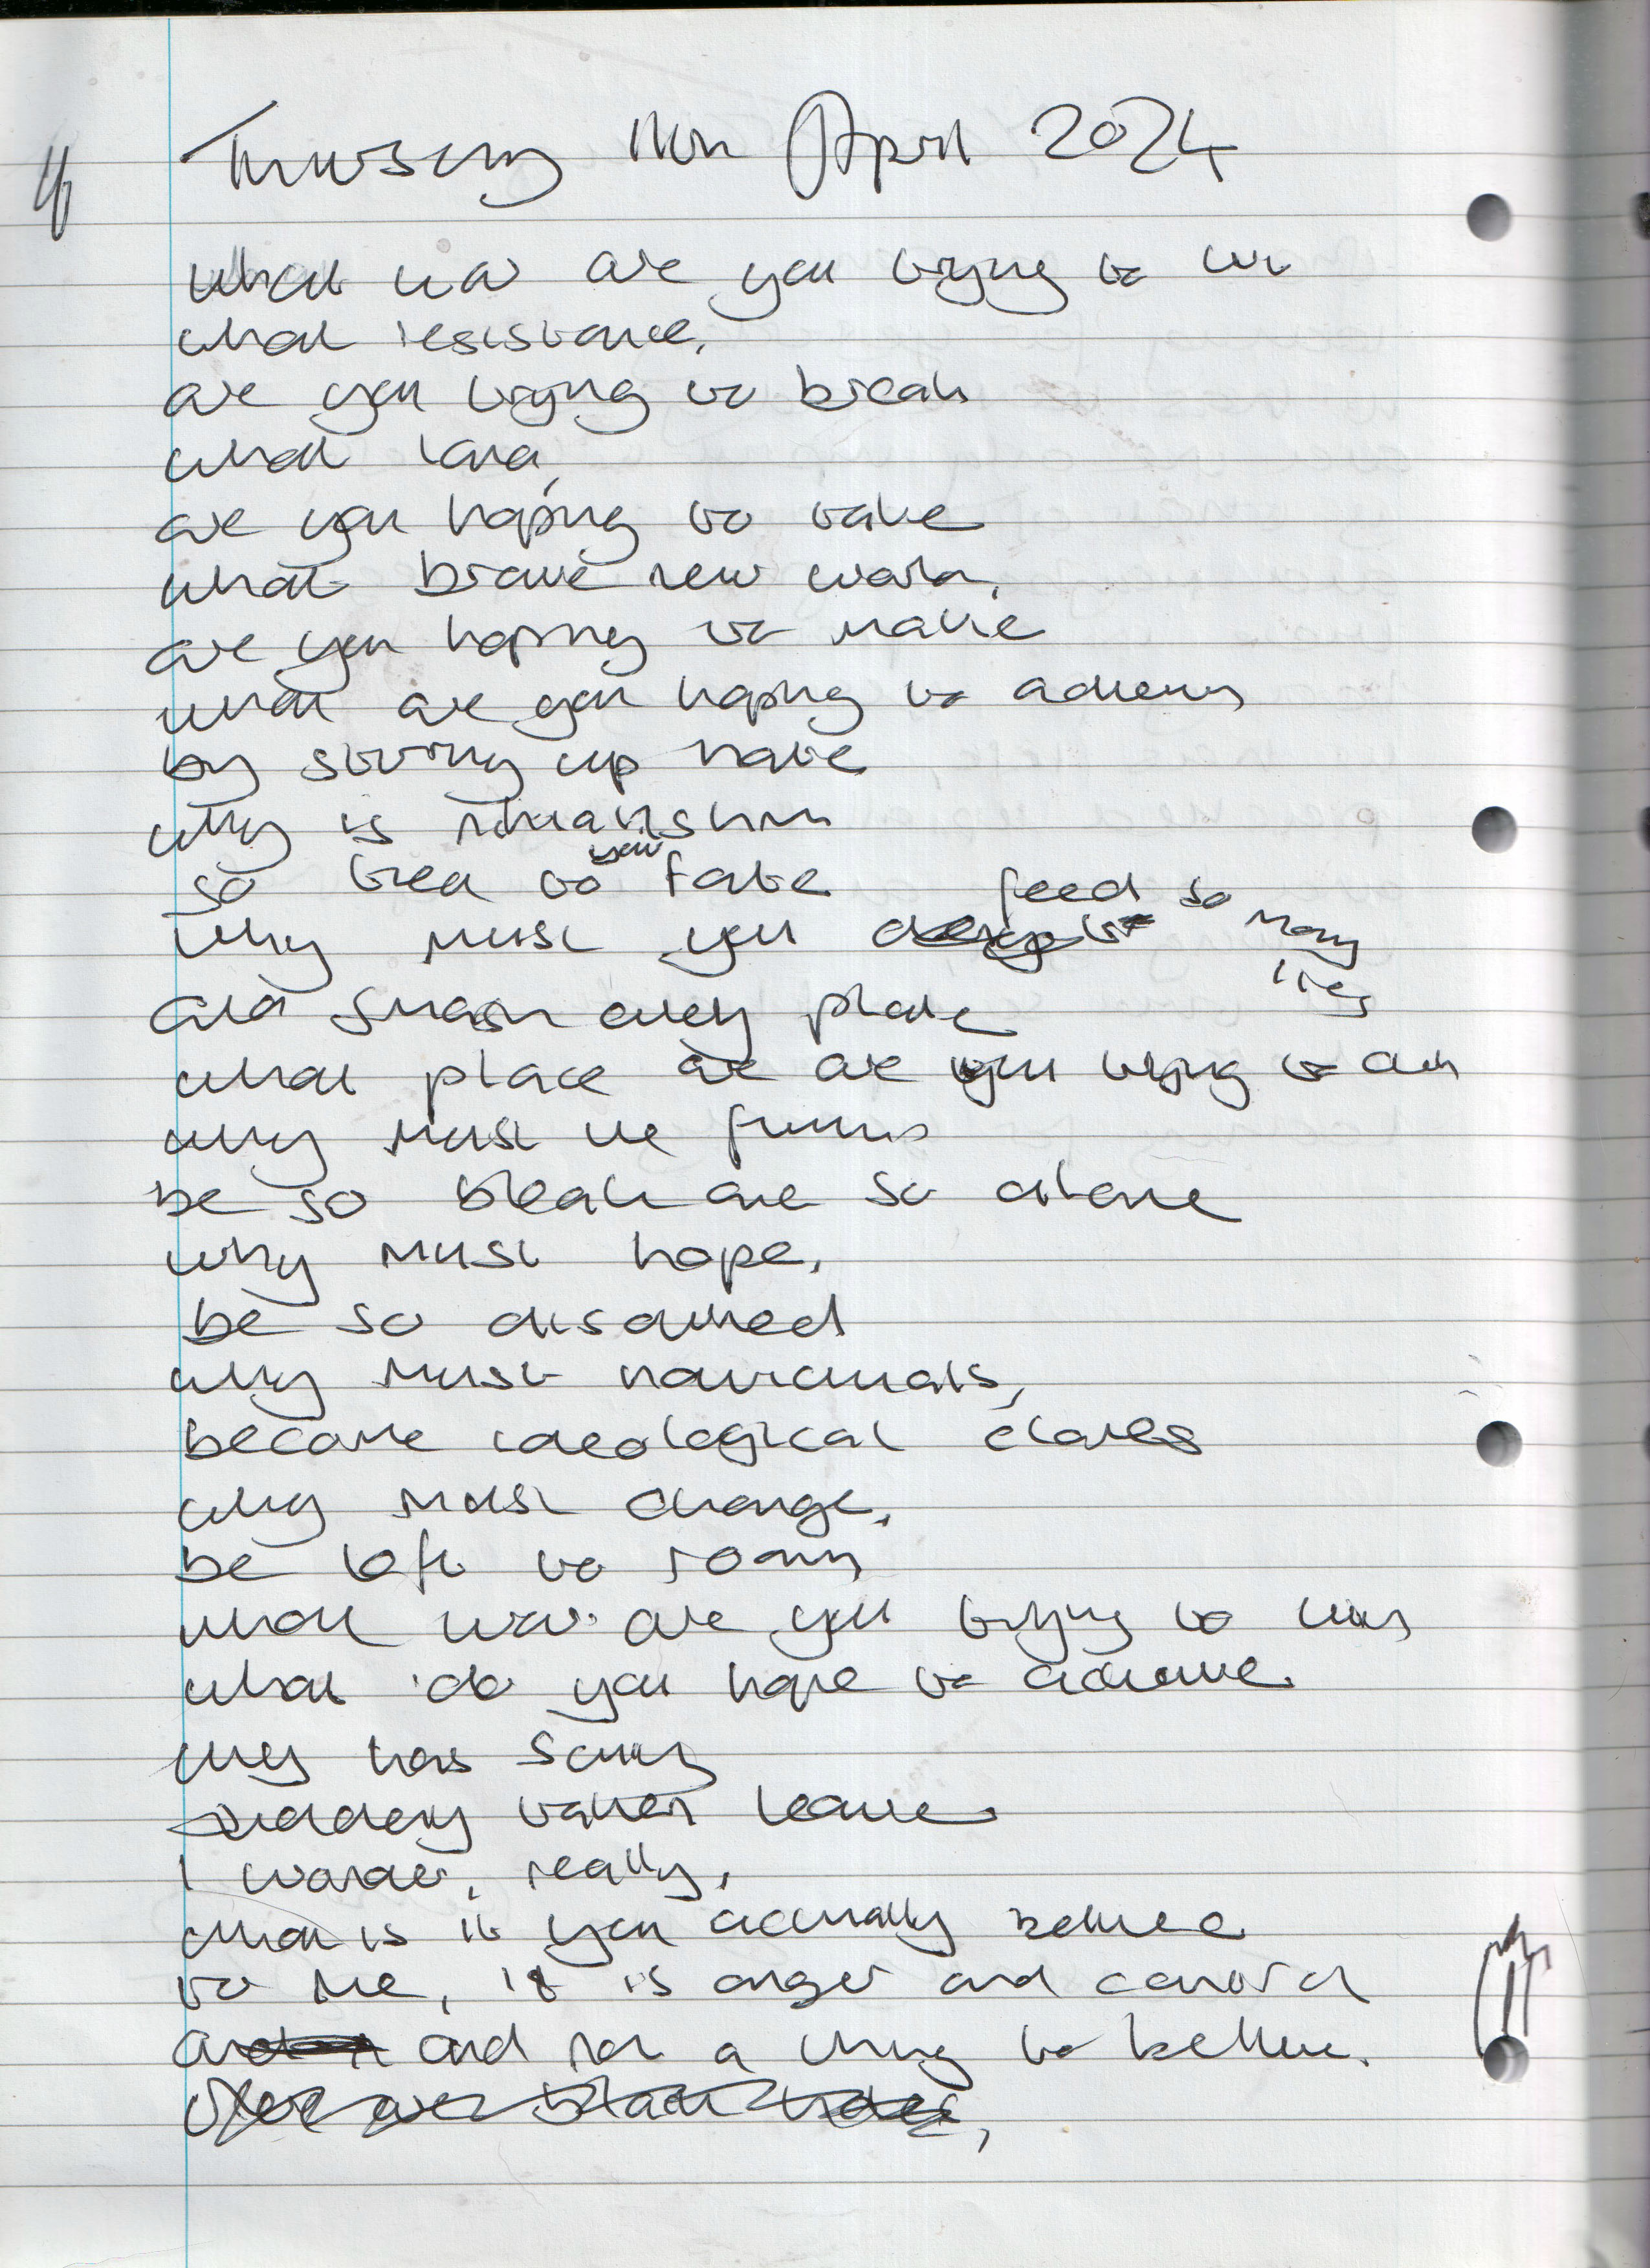 Thursday 11th April 2024
what war are you trying to win
what resistance,
are you trying to break
what land,
are you hoping to take
what brave new world,
are you hoping to make
what are you hoping to achieve
by stirring up hate
why is
so tied to your fate
why must you feed so many lies
and smash every plate
what place are are you trying to
why must the future
be so bleak and so alone
why must hope,
be so disarmed
why must nationals,
become ideological clones
why must change,
be left to roam
what war are you trying to win
what do you hope to achieve
why has sanity
suddenly taken leave
I wonder, really,
what is it you actually believe
to me, it is anger and control
and not a thing to believe.